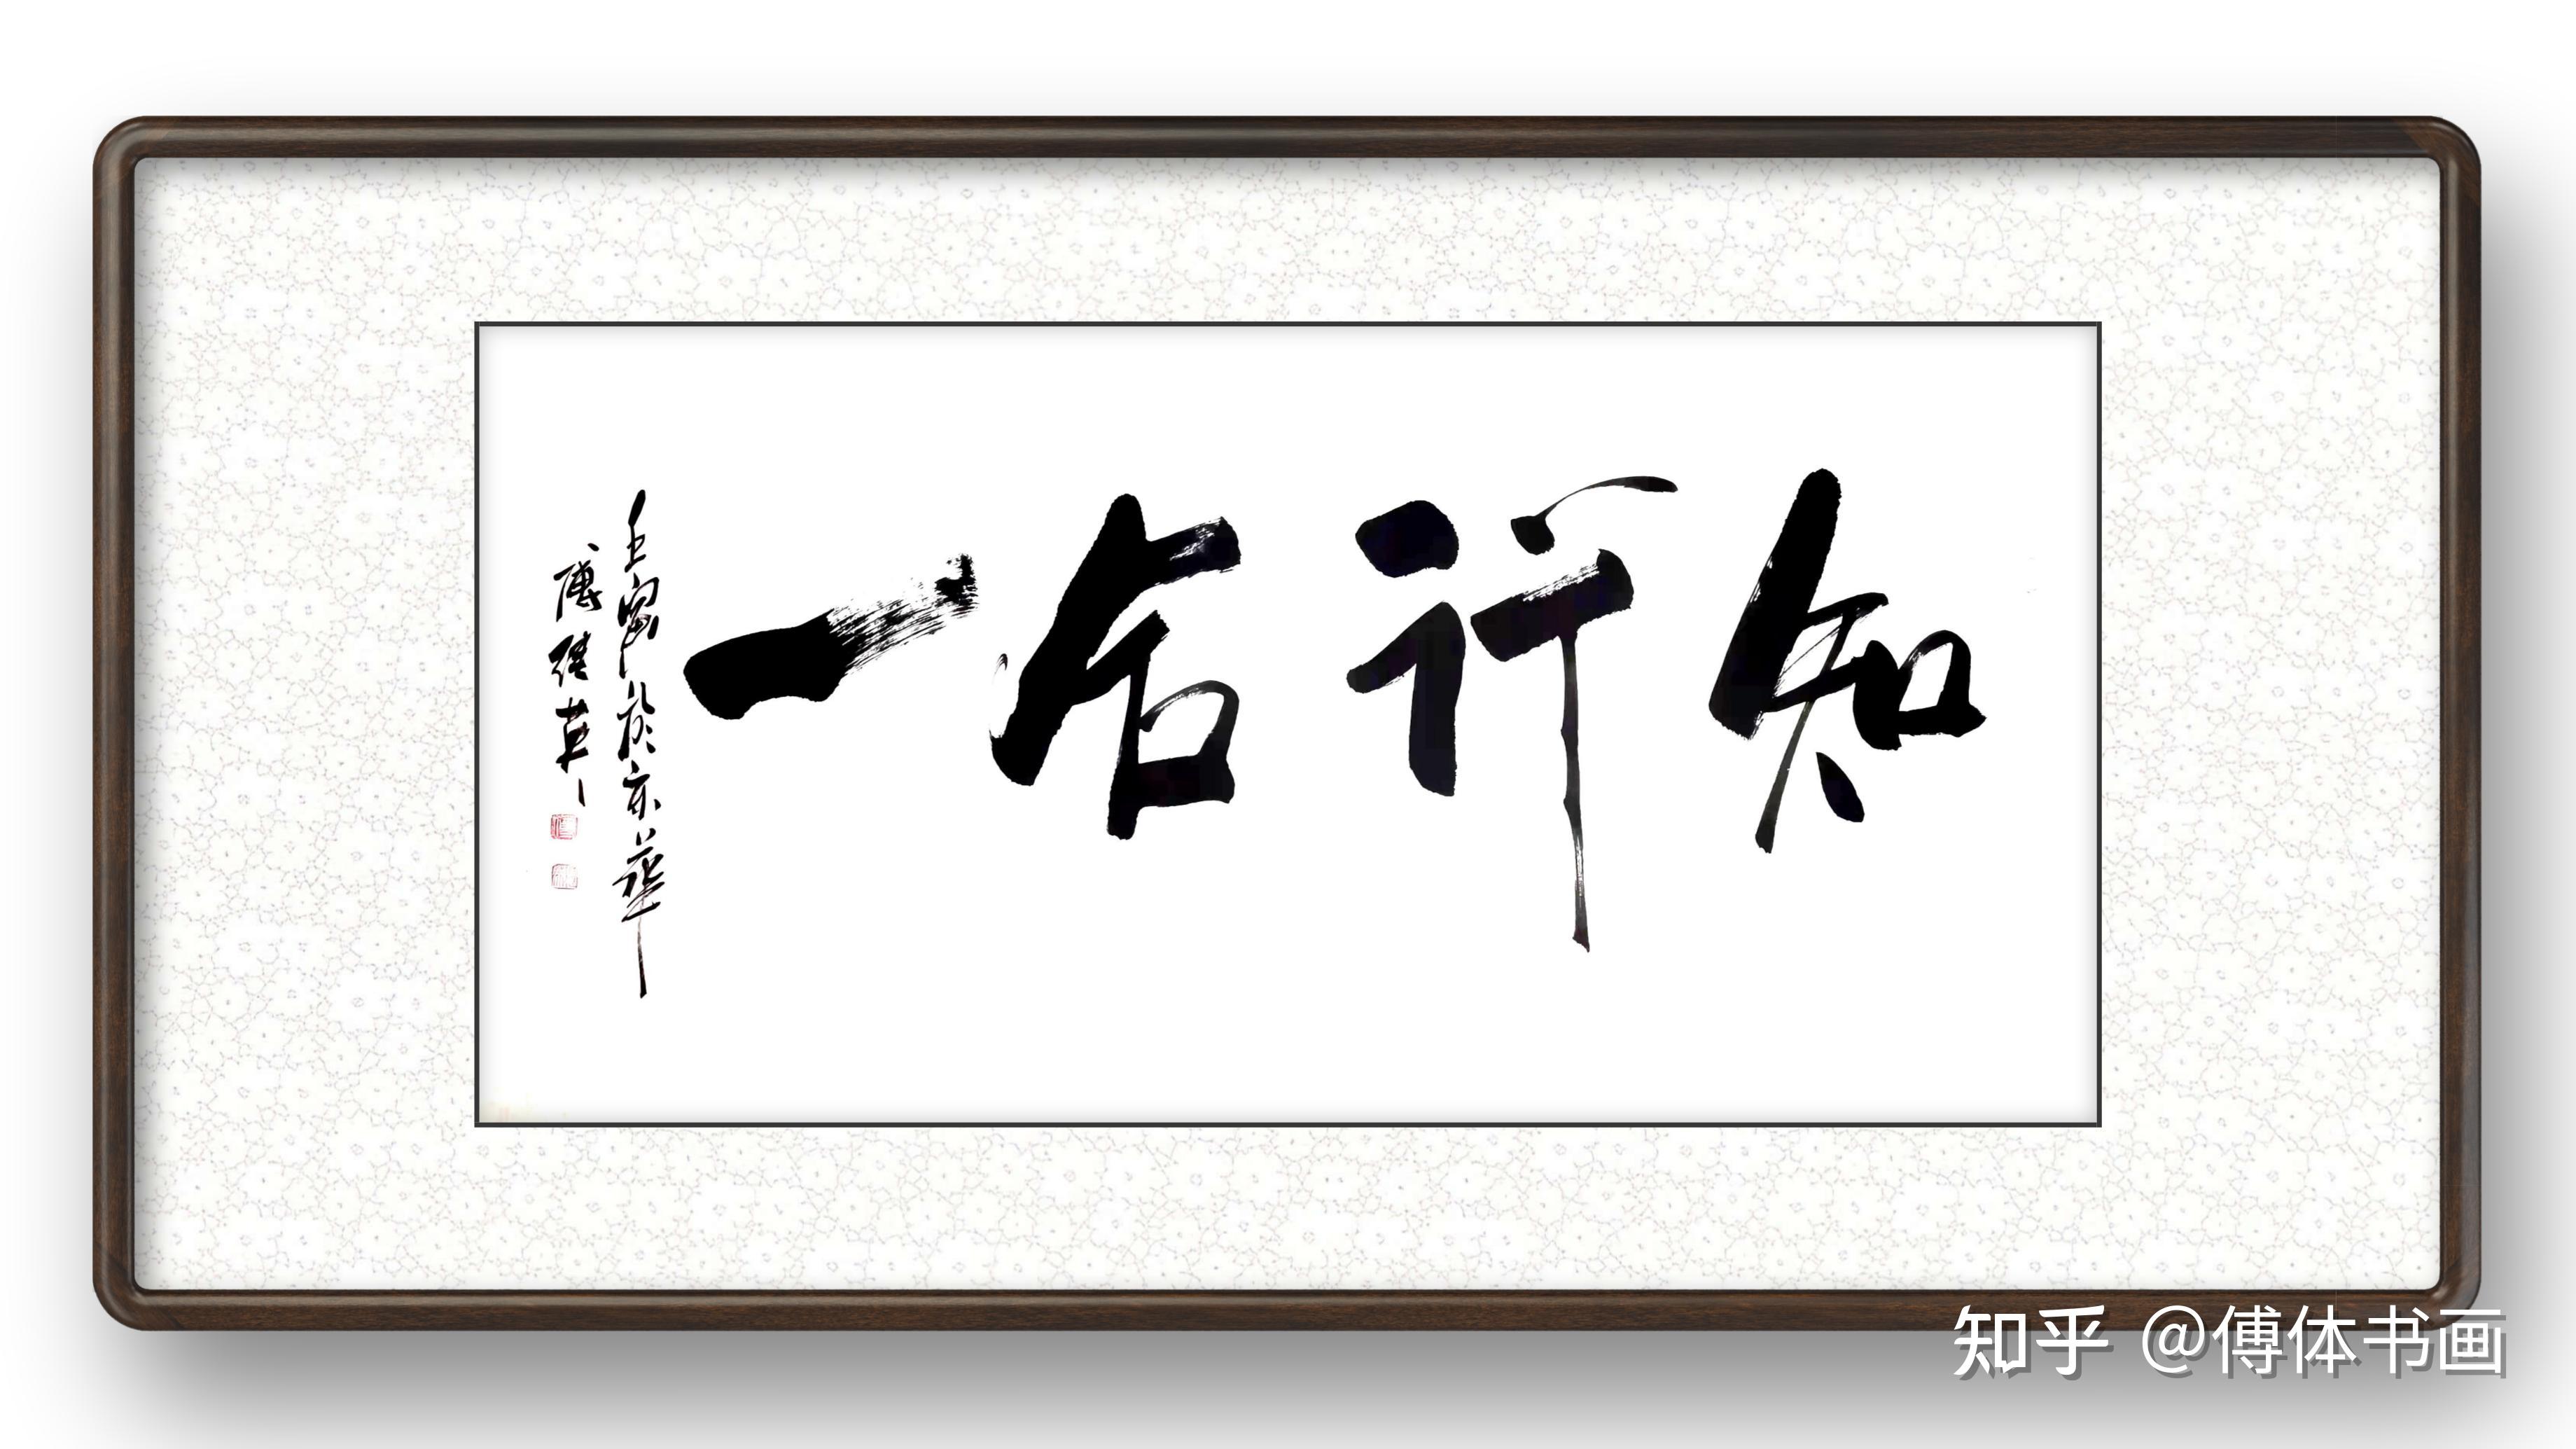 知行合一
壬寅於京華
傅继英
知乎 @傅体书画